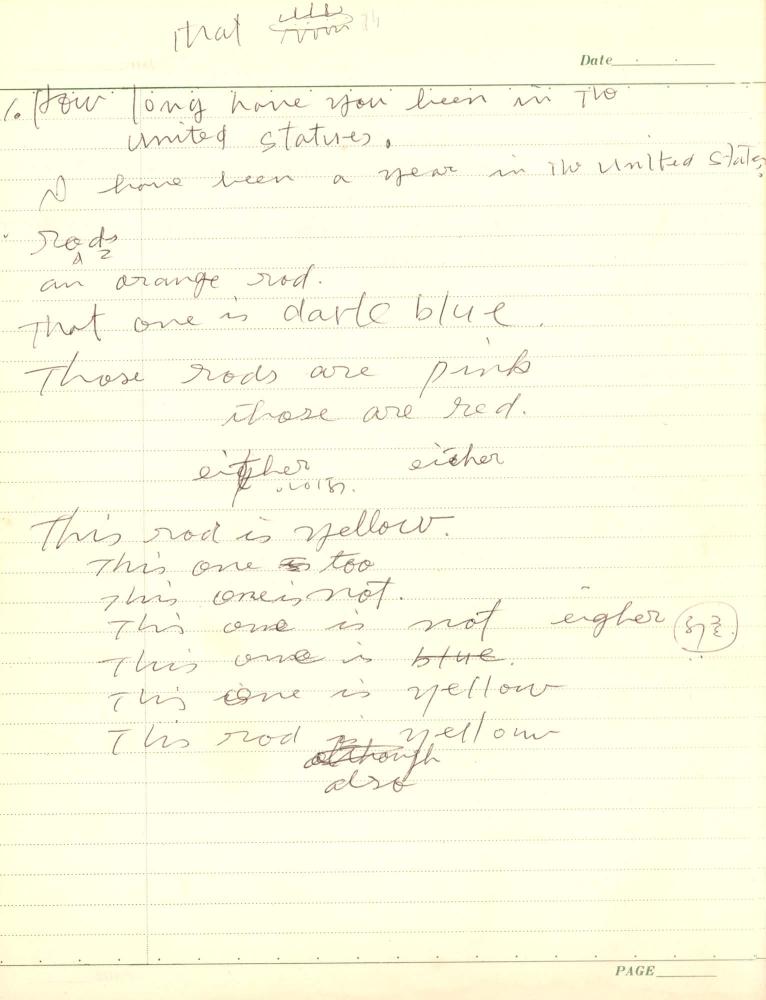 that
Date
1. How long have you been in the
united statues.
I have been a year in the United States.
rods
an orange rod.
That one is dark blue.
Those rods are pink
those are red.
either either
This rod is yellow.
This one is too
This one is not.
This one is not eigher
This one is blue.
This one is yellow
This rod is yellow
although
also
PAGE